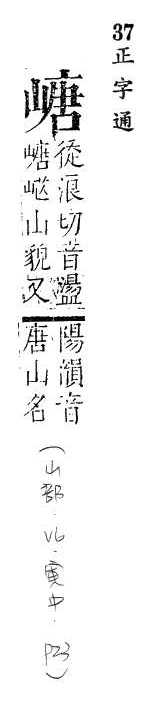 37
正字通
嵣
從浪切音盪
嵣山貌又
陽韻音
唐山名
(山部.V6.寅中.P23)